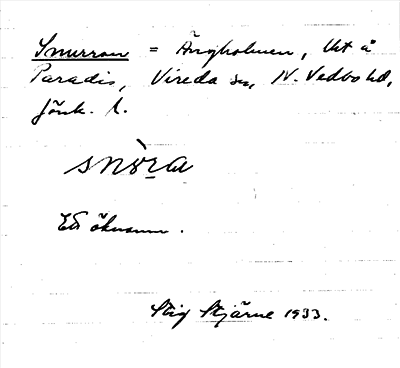 Snurran = Ängholmen, Ut å
Paradis, Vireda sn, N. Vedbo hd,
Jönk. l.
snòra
Ett åkernamn.
Stig Stjärne 1933.